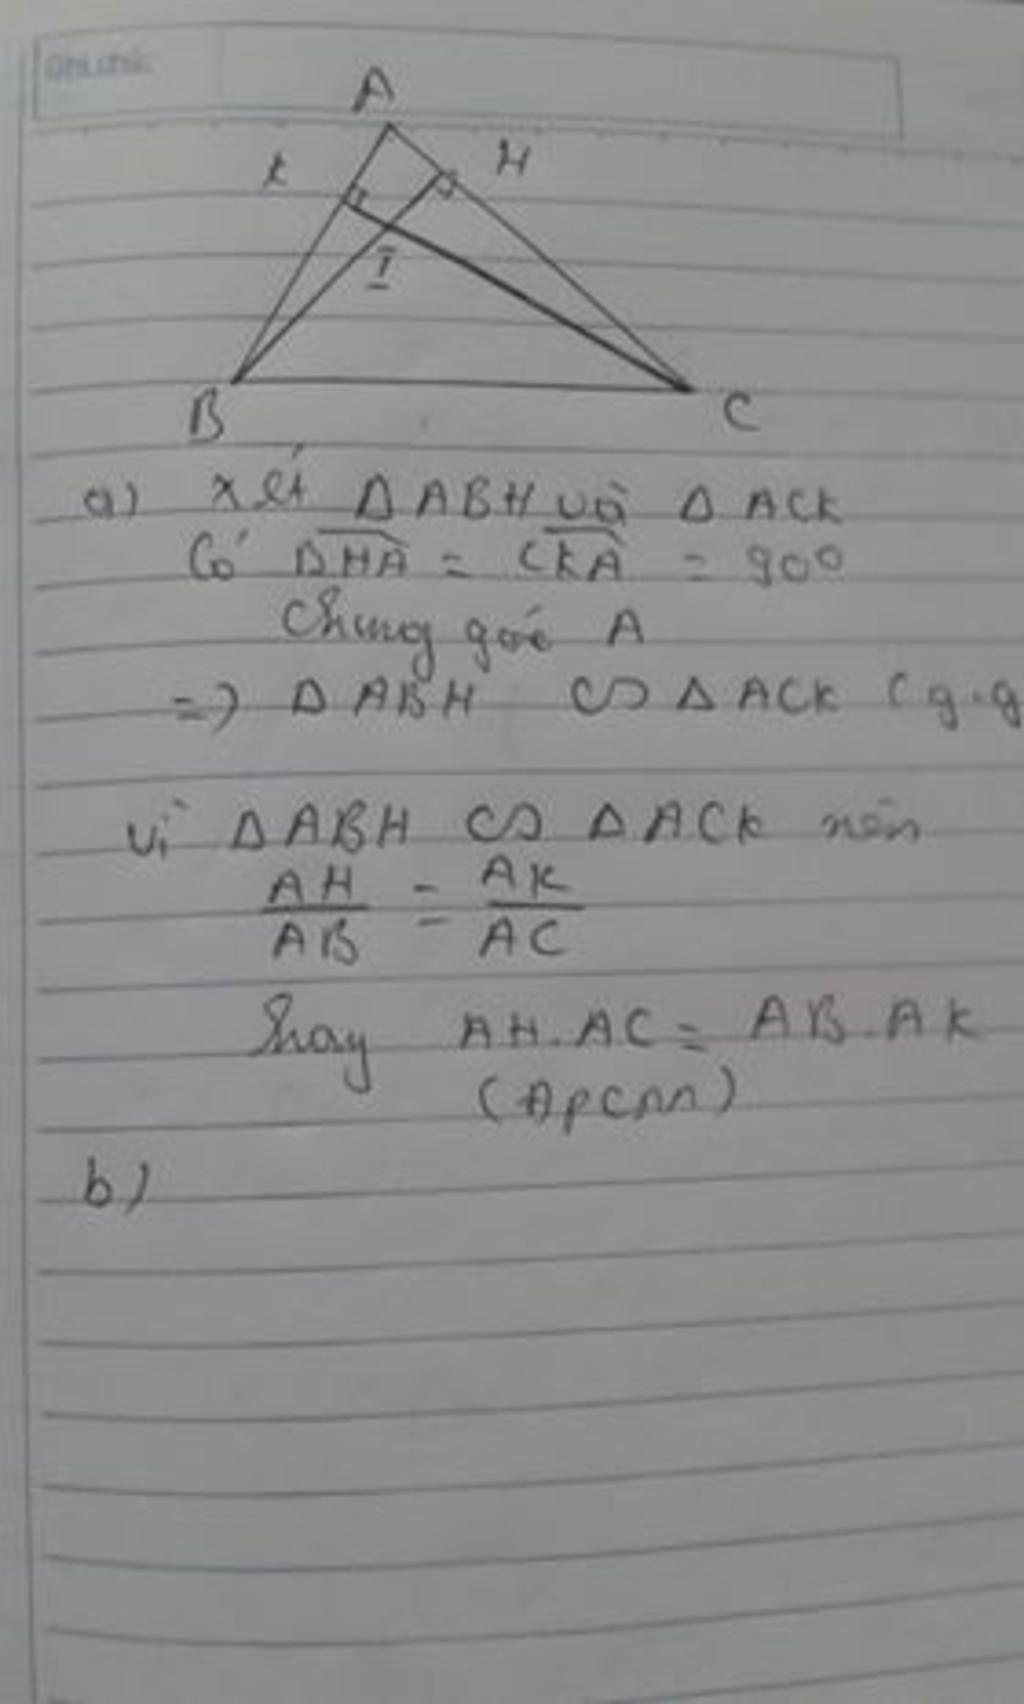 Ghi chú:
A
K H
I
B C
a) xét Δ ABH và Δ ACK
Có BHA = CKA = 90°
Chung góc A
=> Δ ABH ∽ Δ ACK (g.g
Vì Δ ABH ∽ Δ ACK nên
AH/AB = AK/AC
hay AH.AC = AB.AK
(ĐPCM)
b)